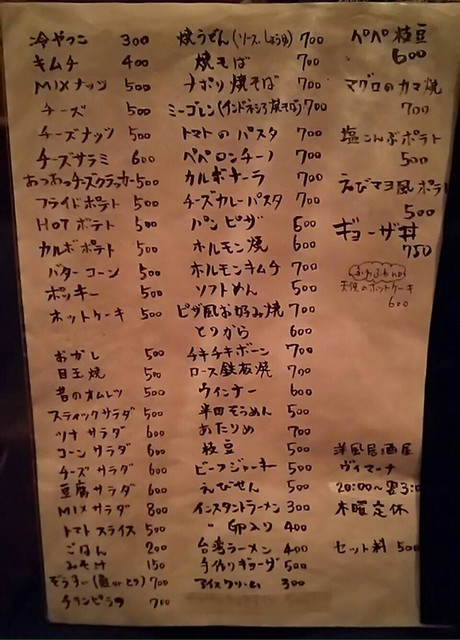 冷やっこ 300
キムチ 400
MIXナッツ 500
チーズ 500
チーズナッツ 500
チーズサラミ 600
あつあつチーズクラッカー 500
フライドポテト 500
HOTポテト 500
カルボポテト 500
バターコーン 500
ポッキー 500
ホットケーキ 500
おかし 500
目玉焼 500
昔のオムレツ 500
スティックサラダ 500
ツナサラダ 600
コーンサラダ 600
チーズサラダ 600
豆腐サラダ 600
MIXサラダ 800
トマトスライス 500
ごはん 200
みそ汁 150
700
チャンピラフ 700
焼うどん(ソース.しょうゆ) 700
焼そば 700
ナポリ焼そば 700
ミーゴレン(インドネシア焼そば) 700
トマトのパスタ 700
ペペロンチーノ 700
カルボナーラ 700
チーズカレーパスタ 700
パンピザ 500
ホルモン焼 600
ホルモンキムチ 700
ソフトめん 500
ピザ風お好み焼 700
とりから 600
チキチキボーン 700
ロース鉄板焼 700
ウィンナー 600
半田そうめん 500
あたりめ 700
枝豆 500
ビーフジャーキー 500
えびせん 500
インスタントラーメン 300
〃 卵入り 400
台湾ラーメン 400
手作りギョーザ 500
アイスクリーム 300
ペペ枝豆
600
マグロのカマ焼
700
塩こんぶポテト
500
えびマヨ風ポテ
500
ギョーザ丼
750
天使のホットケーキ
600
洋風居酒屋
ヴィマーナ
20:00~翌3:0
木曜定休
セット料 500